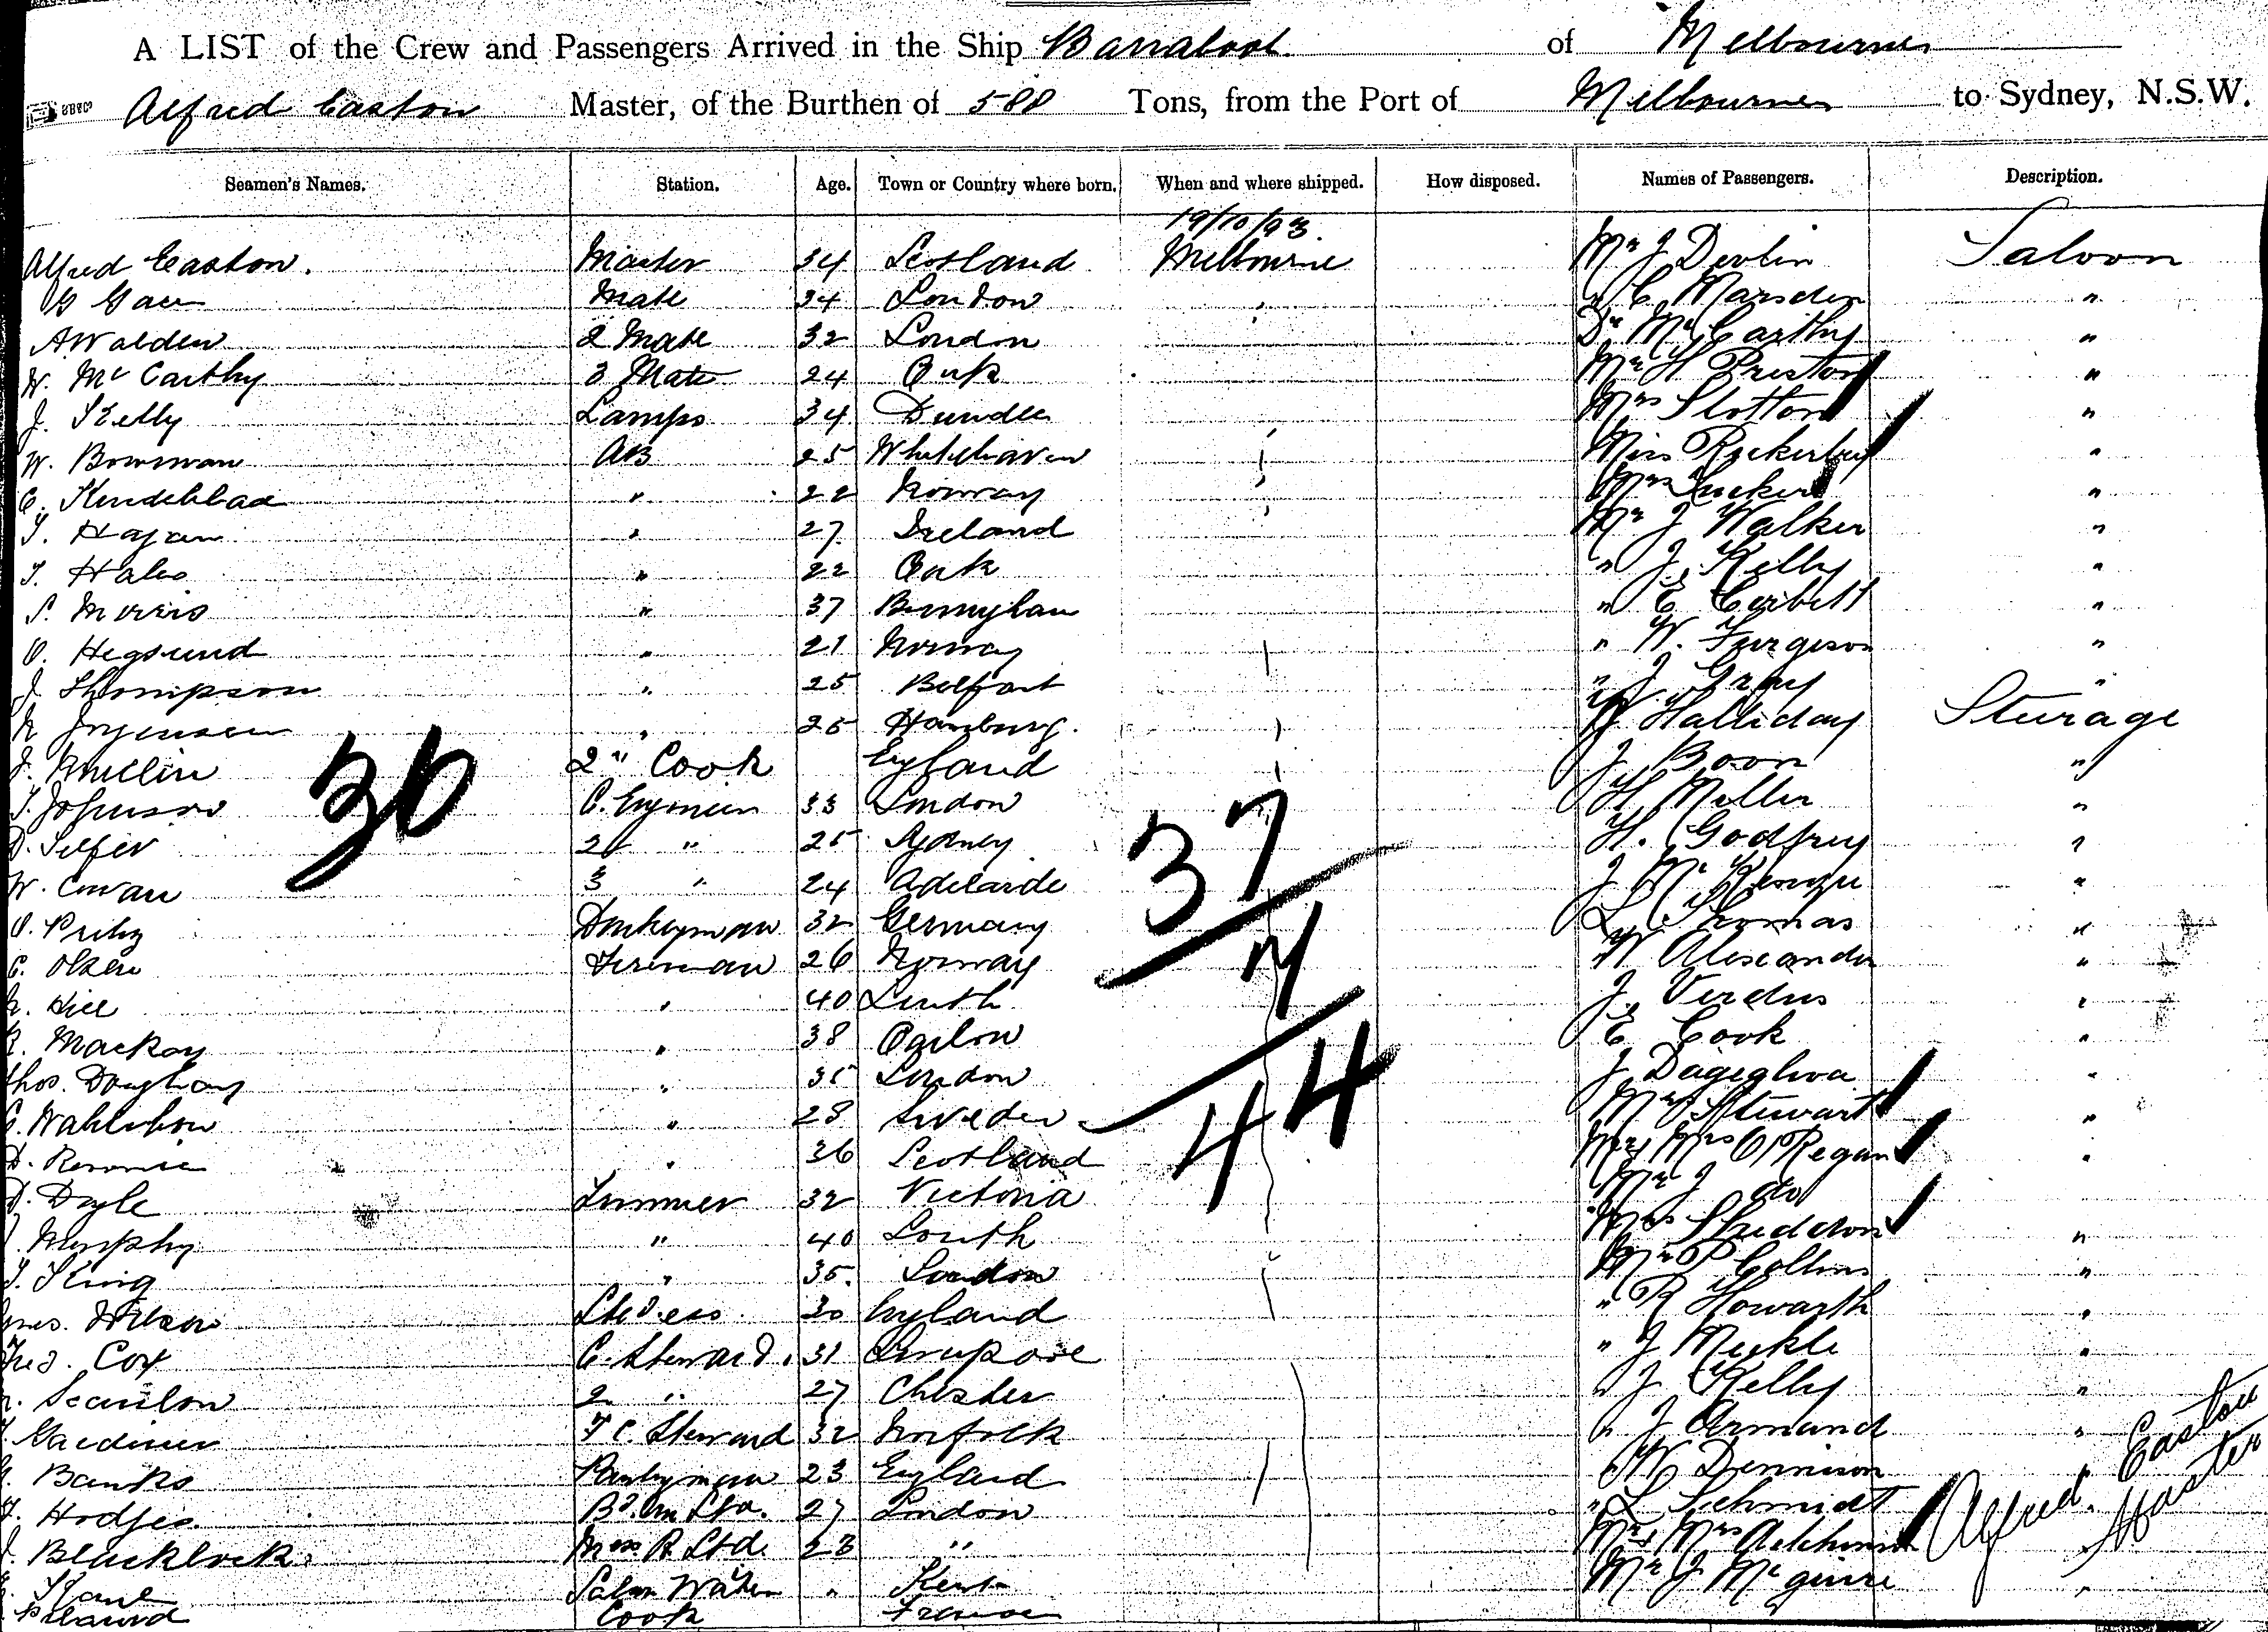 A LIST of the Crew and Passengers Arrived in the Ship Barrabool of Melbourne
Alfred Easton Master, of the Burthen of 588 Tons, from the Port of Melbourne to Sydney, N.S.W.
Seamen's Names. Station. Age. Town or Country where born. When and where shipped. How disposed. Names of Passengers. Description.
19/10/93.
Alfred Easton. Master 34 Scotland Melbourne Mr J Devlin Saloon
Mate 24 London " C Marsden "
A Walden 2 Mate 32 London Dr McCarthy "
W. McCarthy 3 Mate 24 Cork Mr H Preston "
J. Kelly Lamps 34 Dundee Mrs Slotton "
W. Bowman AB 25 Whitehaven Miss Rickerby "
C. " 22 Norway Mrs Tucker "
T. Hagan " 27 Ireland Mr J Walker "
T. Hales " 22 Cork " J. Kelly "
S. Morris " 37 " E Corbett "
O. Hegsund " 21 Norway " W. Furgison "
J. Thompson " 25 Belfast " J Gray "
N Jorgensen " 25 Hamburg. W Halliday Sturage
J. 2nd Cook England J Boon "
T. Johnson C. Engineer 33 London H Miller "
D. Telfer 2 " 25 Sydney H. Godfrey "
W. Cowan 3 " 24 Adelaide J McKenzie "
O. Donkeyman 32 Germany L Thomas "
C. Olsen Fireman 26 Norway W Alexander "
Hill " 40 Louth J. Verdus "
Mackay " 38 E Cook "
Thos. " 35 London J "
C. " 28 Sweden Mrs Stewart "
D. " 36 Scotland Mr & Mrs O'Regan "
D. Doyle Trimmer 32 Victoria Mr J do
Murphy " 40 Louth Mrs "
T. King " 35. London Mr P Collins "
Wilson Stewdess 30 England " R Howarth "
Fred. Cox C. Steward. 31 " J Meikle "
Scanlon 2 " 27 Chester " J Kelly "
Gardiner F C. Steward 32 Norfolk " J Armand "
Banks Pantryman 23 England " W Dennison "
Hodges London " L Schmidt
Blacklock. Mess R Std. 23 " Mr & Mrs
Kane Saloon Waiter " Kent Mr J McGuire "
Cook France
30
37
7
44
Alfred. Easton
Master